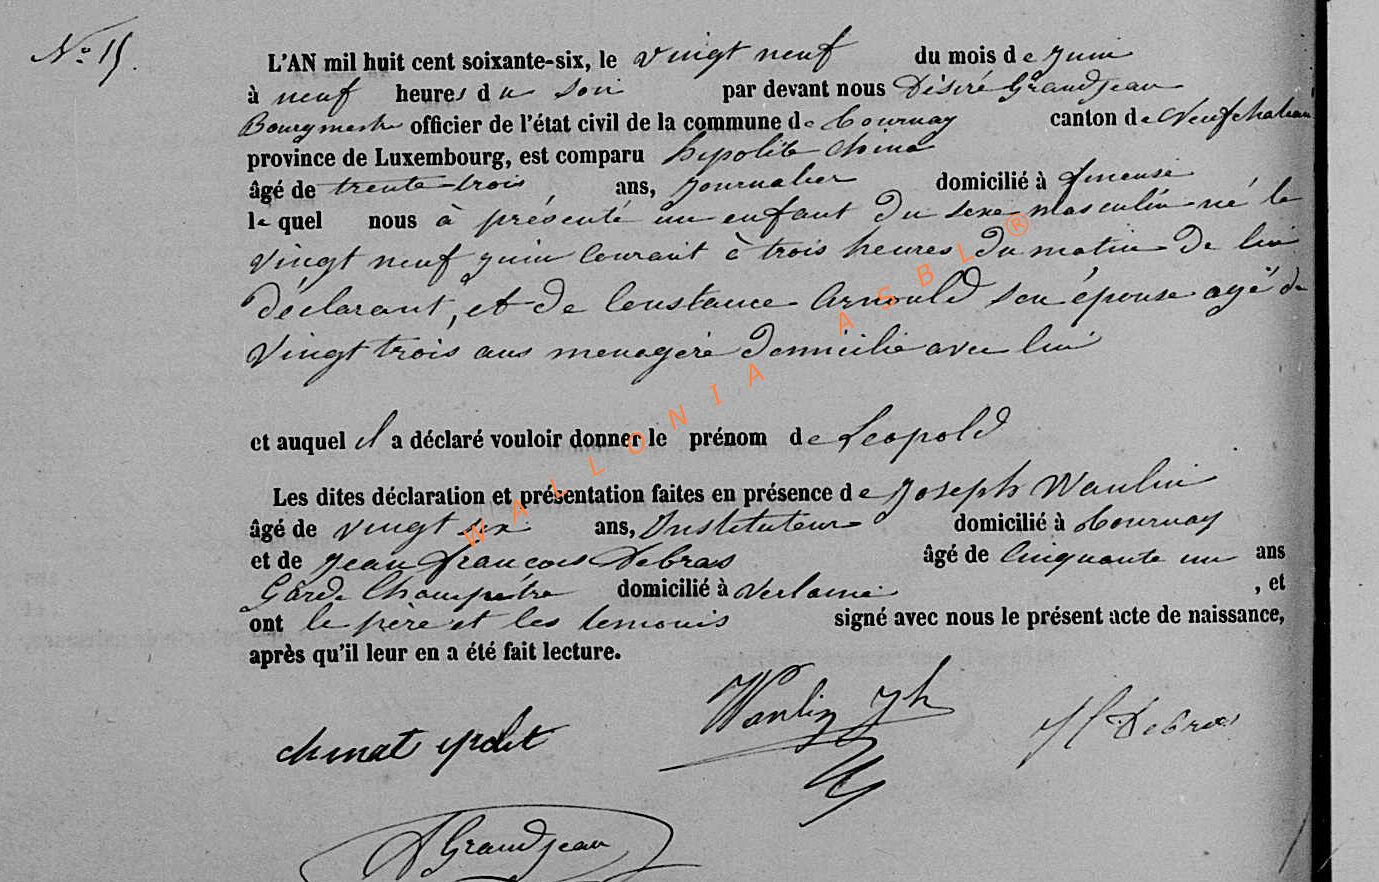 N° 15.
L'AN mil huit cent soixante-six, le vingt neuf du mois de Juin
à neuf heures du soir par devant nous Désiré Grandjean
Bourgmestre officier de l'état civil de la commune de Tournay canton de Neufchateau
province de Luxembourg, est comparu hipolite China
âgé de trente-trois ans, journalier domicilié à
le quel nous à présenté un enfant du sexe masculin né le
vingt neuf juin Courant à trois heures du matin de lui
déclarant, et de Constance Arnould son épouse agé de
Vingt trois ans menagère domicilié avec lui
et auquel il a déclaré vouloir donner le prénom de Leopold
Les dites déclaration et présentation faites en présence de Joseph Waulin
âgé de vingt six ans, Instituteur domicilié à Tournay
et de Jean francois Debras âgé de Cinquante un ans
Garde Champêtre domicilié à Verlaine , et
ont le père et les temouis signé avec nous le présent acte de naissance,
après qu'il leur en a été fait lecture.
chinat ypolit Waulin Jh Debras
D Grandjean
WALLONIA ASBL ®